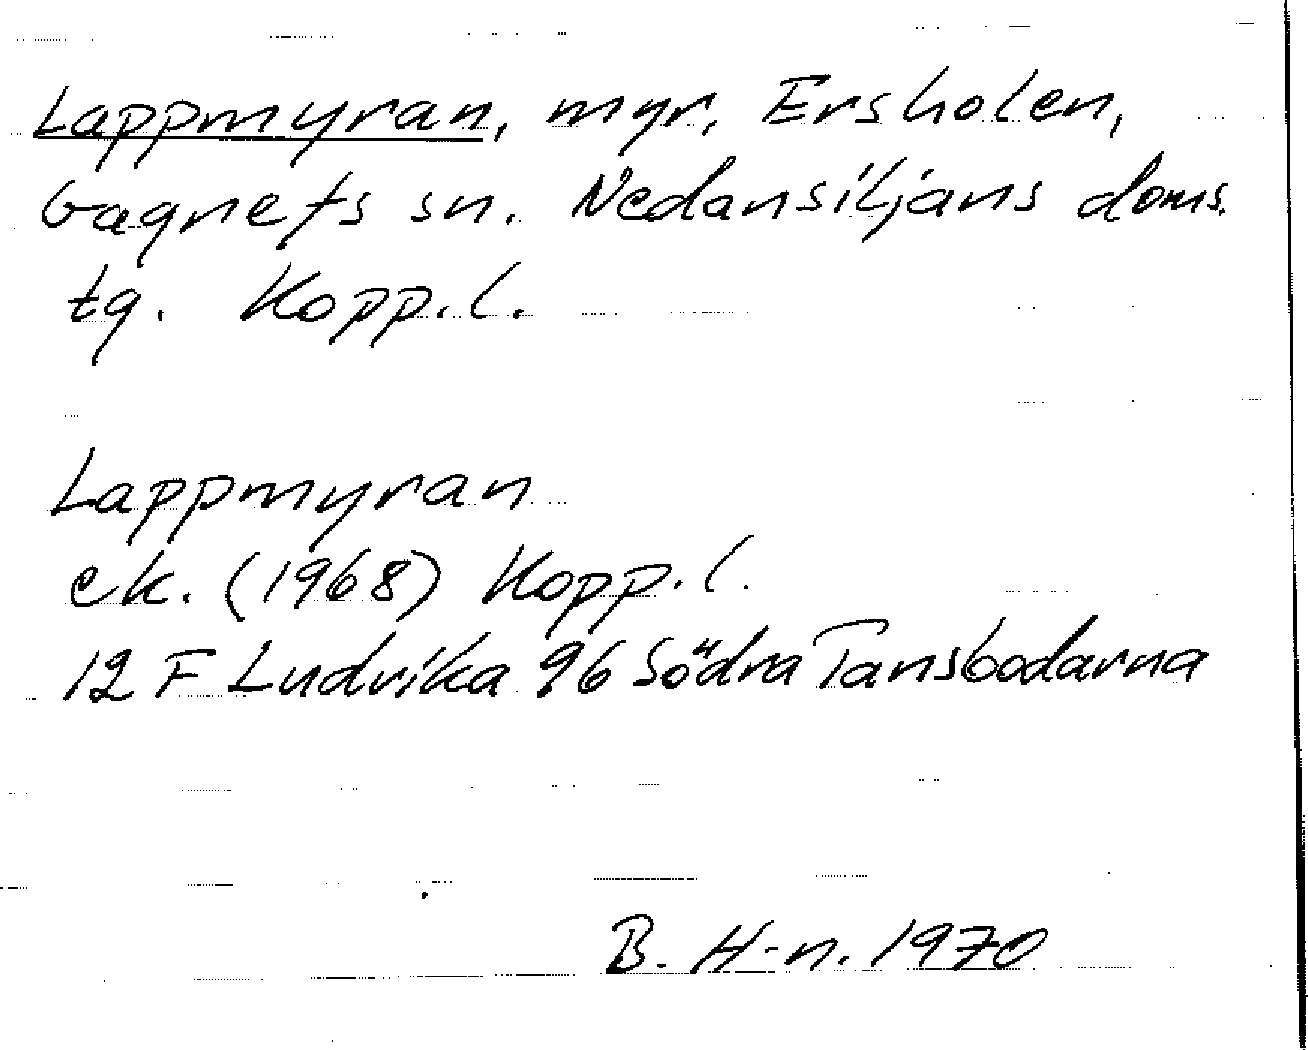 Lappmyran, myr, Ersholen,
Gagnefs sn. Nedansiljans doms.
tg. Kopp.l.
Lappmyran
ek. (1968) Kopp.l.
12 F Ludvika 96 Södra Tansbodarna
B. H-n. 1970